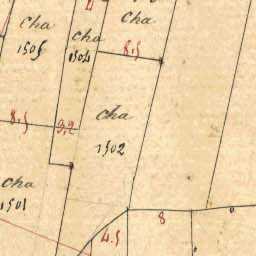 Cha
1505
Cha
1504
Cha
8.5
8.5
9,2
Cha
1502
Cha
1501
4.5
8